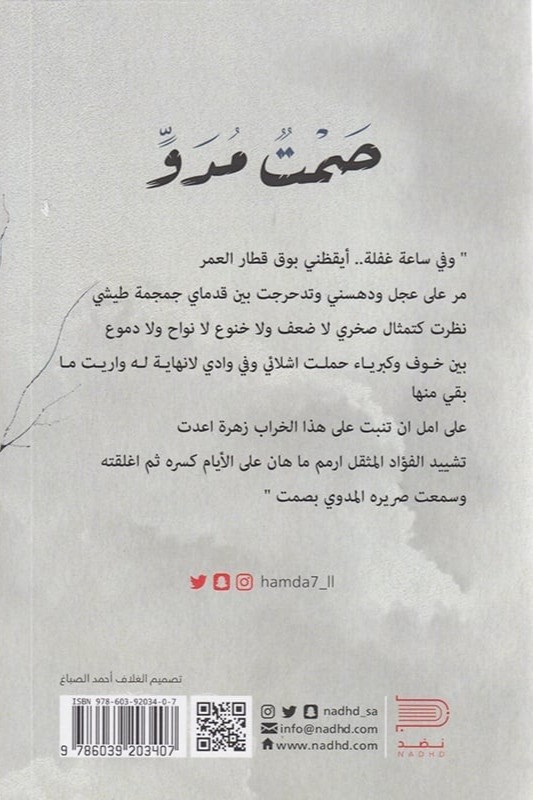 صَمْتٌ مُدَوٍّ
" وفي ساعة غفلة.. أيقظني بوق قطار العمر
مر على عجل ودهسني وتدحرجت بين قدماي جمجمة طيشي
نظرت كتمثال صخري لا ضعف ولا خنوع لا نواح ولا دموع
بين خوف وكبرياء حملت اشلائي وفي وادي لانهاية له واريت ما
بقي منها
على امل ان تنبت على هذا الخراب زهرة اعدت
تشييد الفؤاد المثقل ارمم ما هان على الأيام كسره ثم اغلقته
وسمعت صريره المدوي بصمت "
hamda7_ll
تصميم الغلاف أحمد الصباغ
ISBN 978-603-92034-0-7
9 786039 203407
nadhd_sa
info@nadhd.com
www.nadhd.com
نضد
NADHD